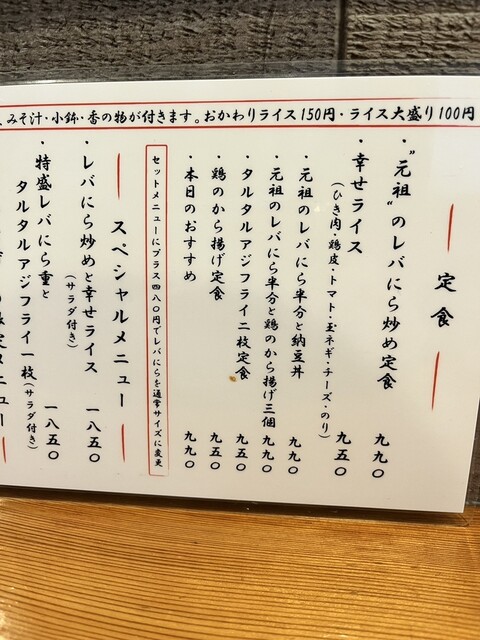 、みそ汁・小鉢・香の物が付きます。おかわりライス150円・ライス大盛り100円
定食
・“元祖”のレバにら炒め定食 九九〇
・幸せライス 九五〇
(ひき肉・鶏皮・トマト・玉ネギ・チーズ・のり)
・元祖のレバにら半分と納豆丼 九九〇
・元祖のレバにら半分と鶏のから揚げ三個 九九〇
・タルタルアジフライ二枚定食 九五〇
・鶏のから揚げ定食 九五〇
・本日のおすすめ 九九〇
セットメニューにプラス四八〇円でレバにらを通常サイズに変更
スペシャルメニュー
・レバにら炒めと幸せライス 一八五〇
(サラダ付き)
・特盛レバにら重と
タルタルアジフライ一枚(サラダ付き) 一八五〇
定メニュー